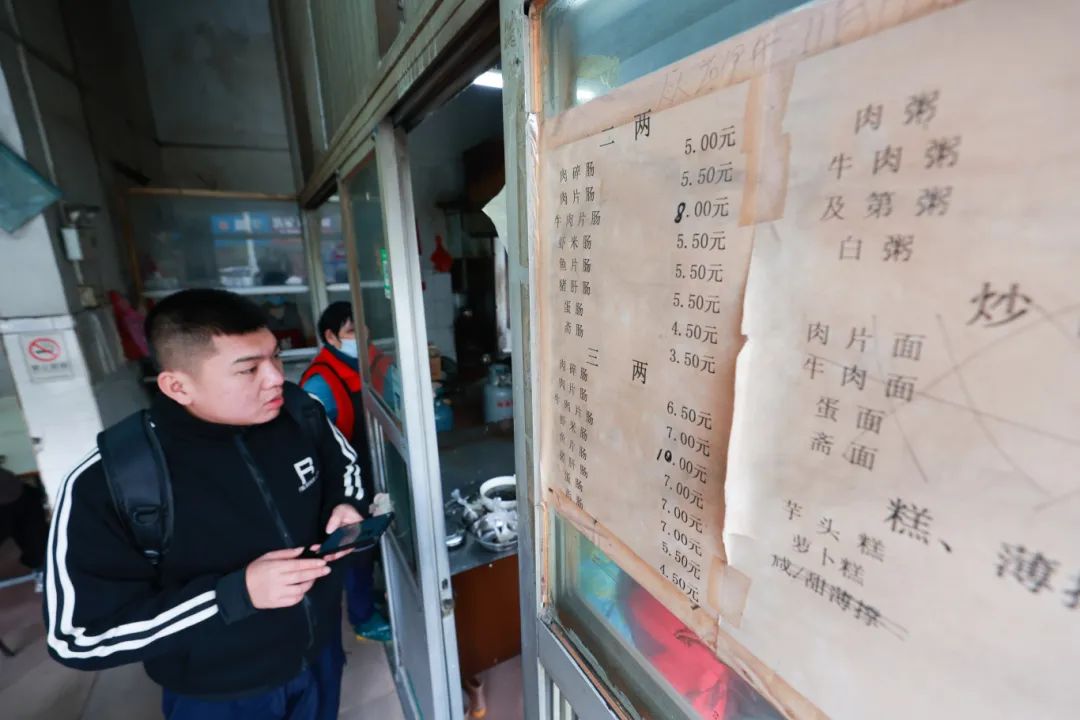 二两
肉碎肠 5.00元
肉片肠 5.50元
牛肉片肠 8.00元
虾米肠 5.50元
鱼片肠 5.50元
猪肝肠 5.50元
蛋肠 4.50元
斋肠 3.50元
三两
肉碎肠 6.50元
肉片肠 7.00元
牛肉片肠 10.00元
虾米肠 7.00元
鱼片肠 7.00元
猪肝肠 7.00元
蛋肠 5.50元
斋肠 4.50元
肉粥
牛肉粥
及第粥
白粥
炒
肉片面
牛肉面
蛋面
斋面
糕、薄
芋头糕
萝卜糕
咸/甜薄撑